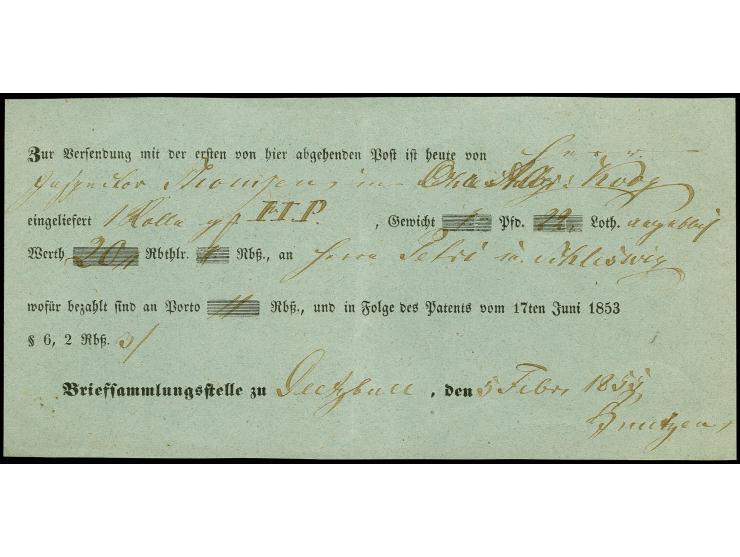 Zur Versendung mit der ersten von hier abgehenden Post ist heute von Herrn
Inspector Thomsen in
eingeliefert 1 Rolle gz. F.T.P. , Gewicht Pfd. 22 Loth. angeblich
Werth 20 Rbthlr. Rbß., an Herrn Petri in Schleswig
wofür bezahlt sind an Porto 11 Rbß., und in Folge des Patents vom 17ten Juni 1853
§ 6, 2 Rbß.
Briefsammlungsstelle zu Deetzbüll , den 5 Febr 1855